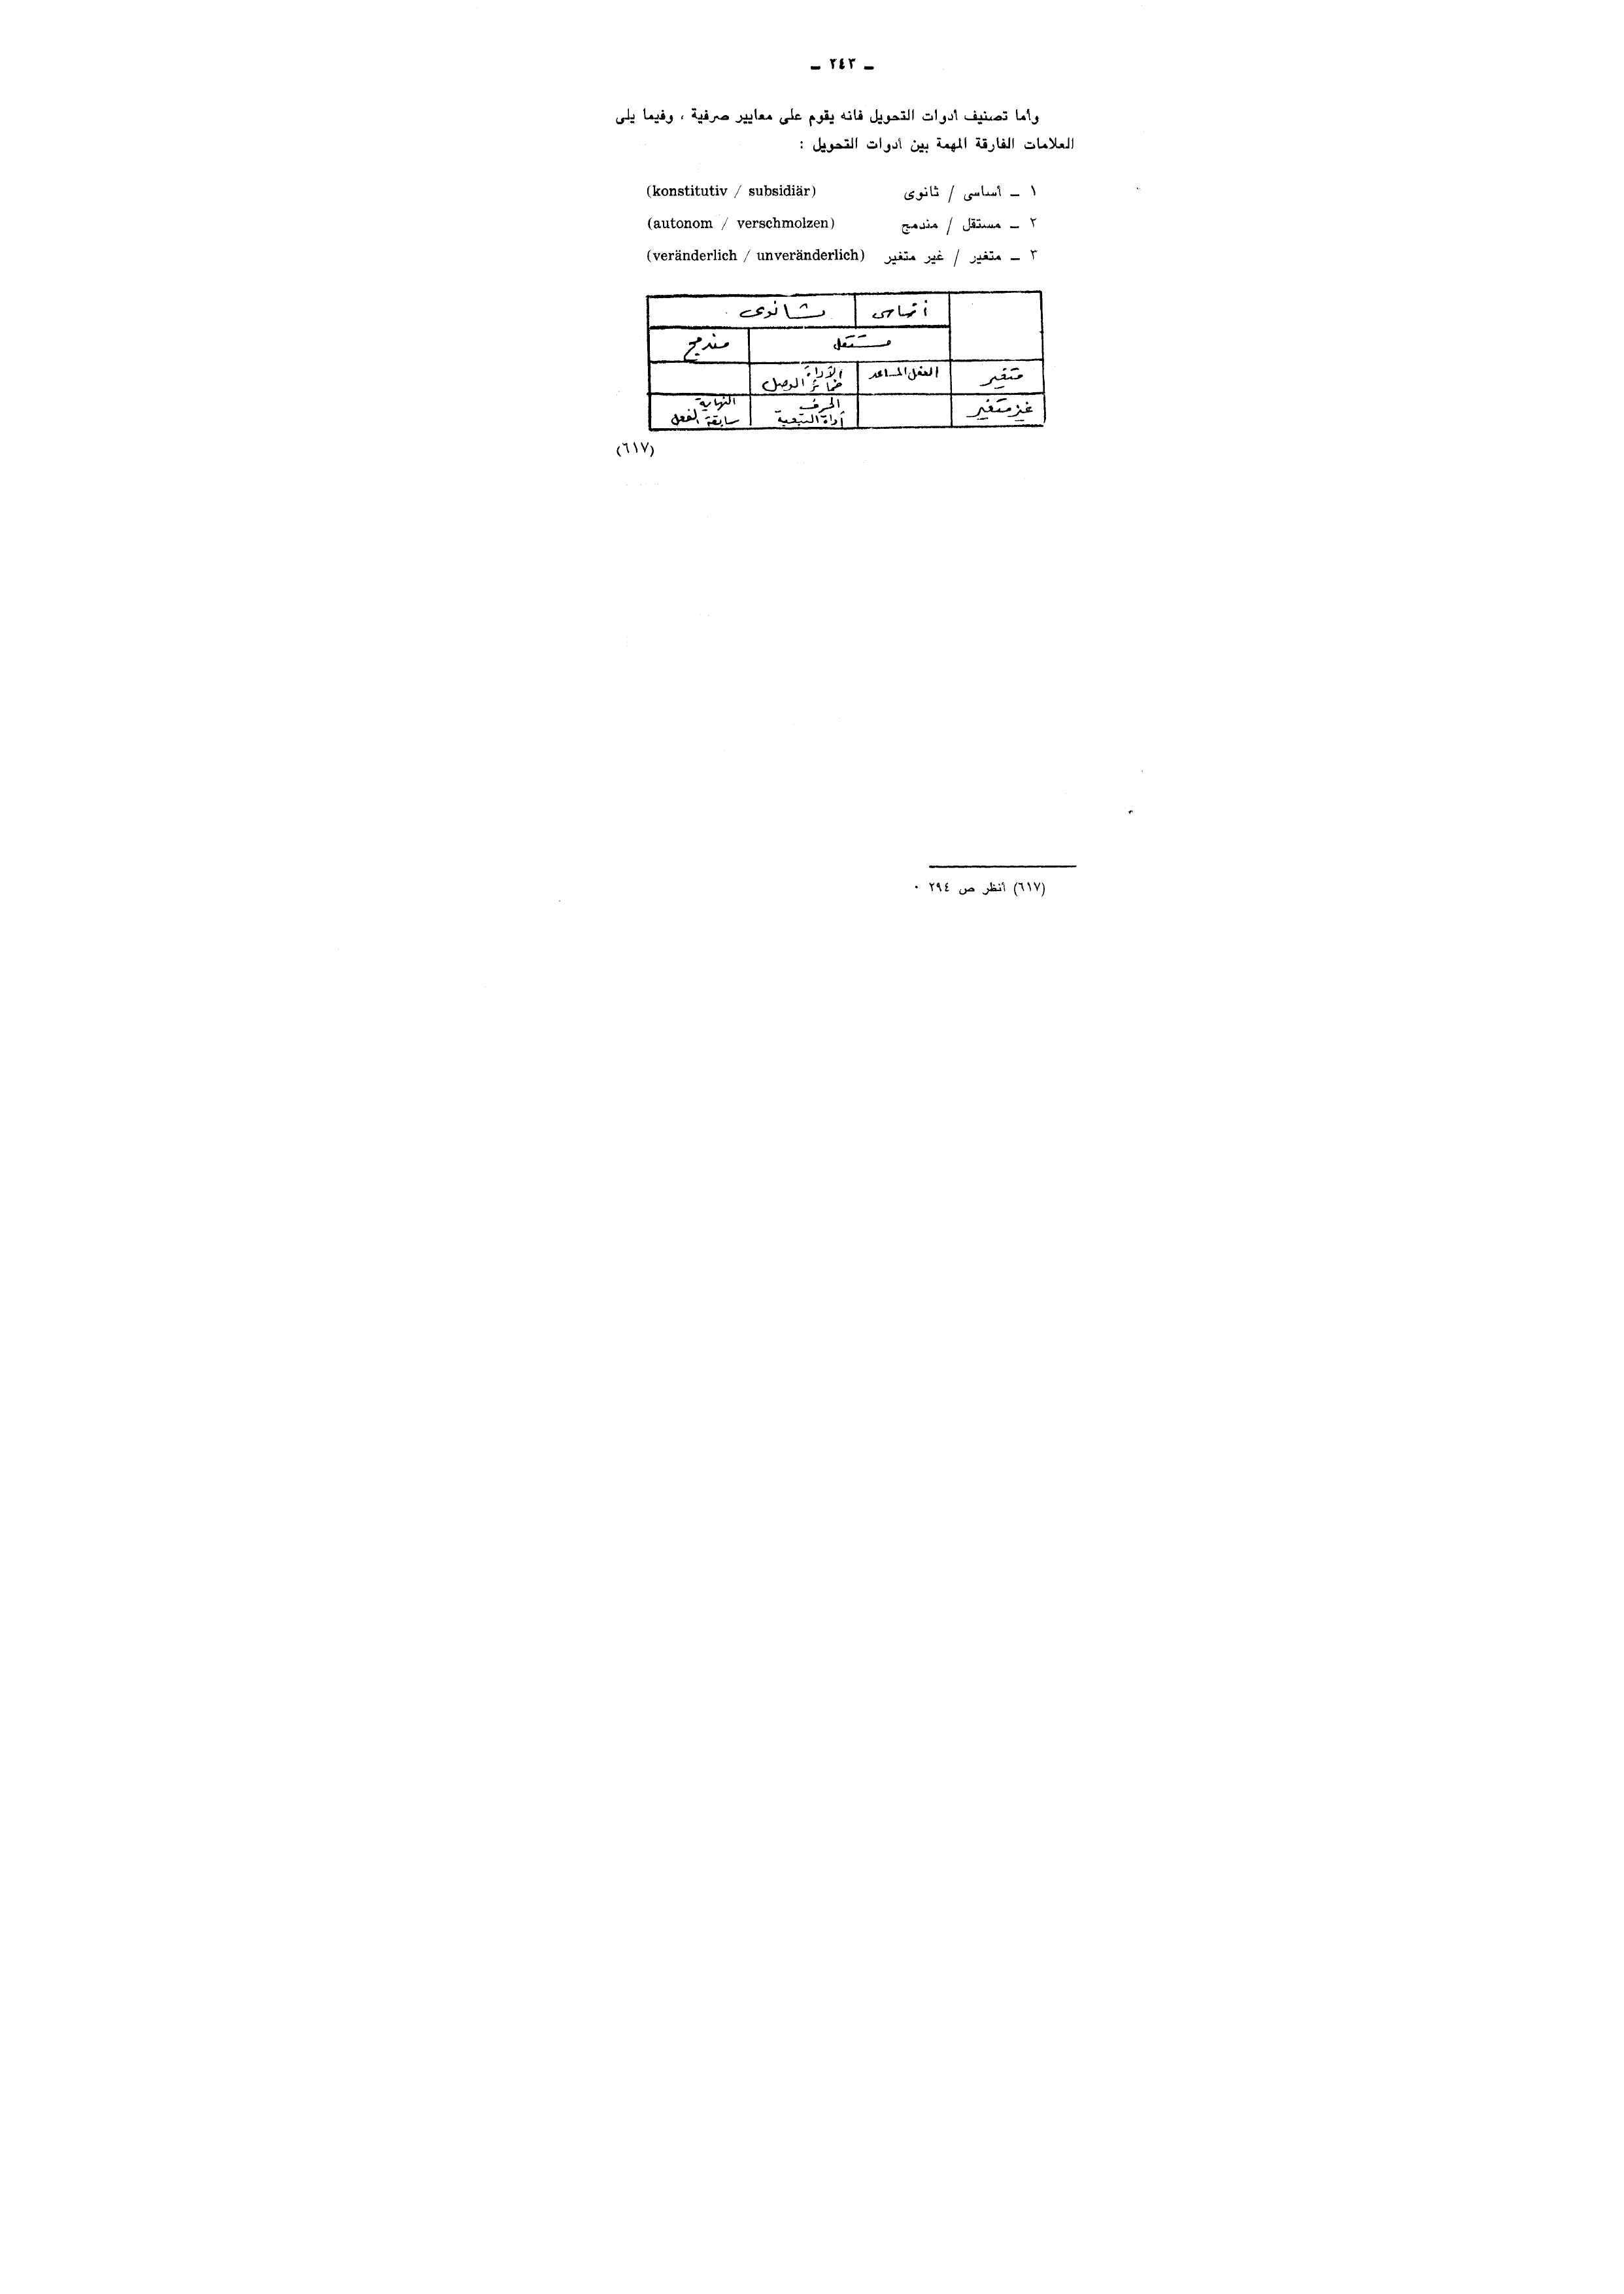 ـ ٢٤٣ ـ
وأما تصنيف أدوات التحويل فانه يقوم على معايير صرفية ، وفيما يلى
العلامات الفارقة المهمة بين أدوات التحويل :
١ ـ أساسى / ثانوى (konstitutiv / subsidiär)
٢ ـ مستقل / مندمج (autonom / verschmolzen)
٣ ـ متغير / غير متغير (veränderlich / unveränderlich)
أساسى ثانوى
مستقل مندمج
متغير الفعل المساعد الأداة
ضمائر الوصل
غير متغير الحرف النهاية
أداة التبعية سابقة الفعل
(٦١٧)
(٦١٧) أنظر ص ٢٩٤ ٠